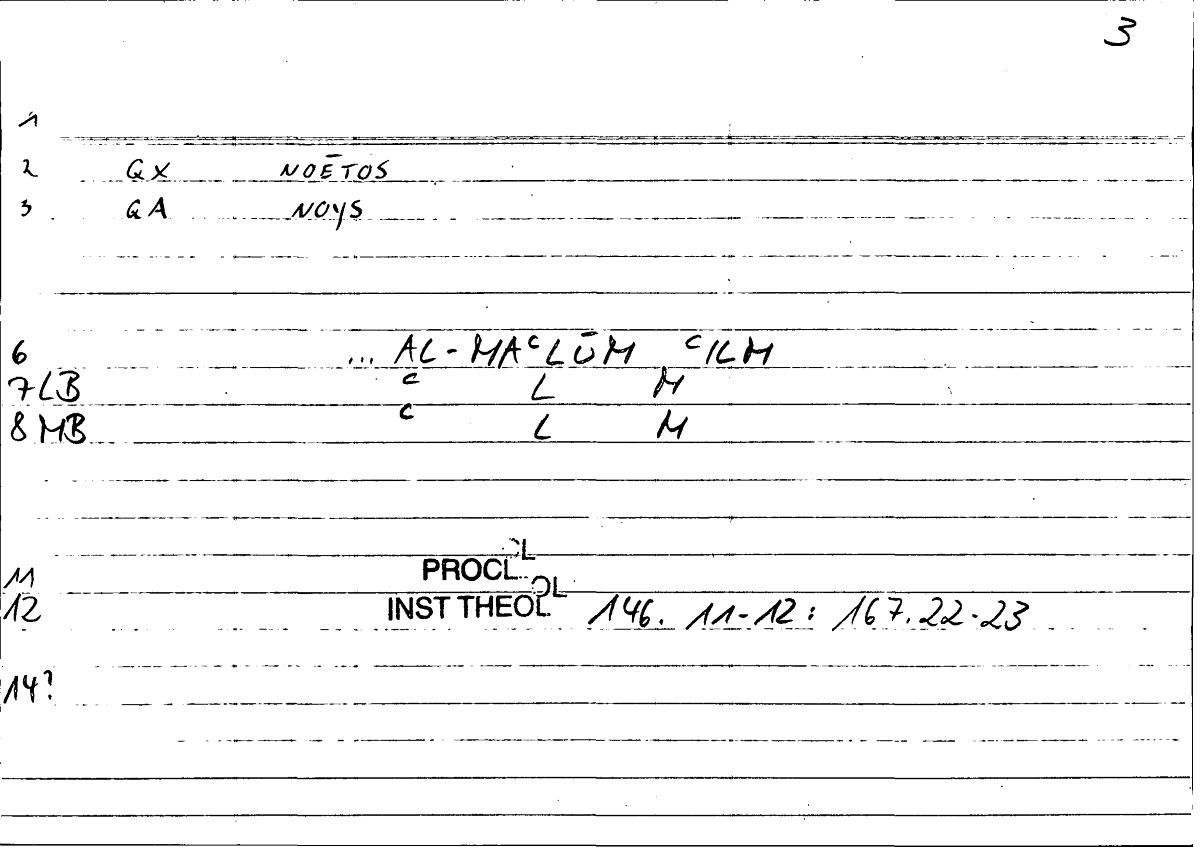 3
1
2 GX NOĒTOS
3 GA NOYS
6 ... AL-MAᶜLŪM ᶜILM
7 LB ᶜ L M
8 MB ᶜ L M
11 PROCL
12 INST THEOL 146. 11-12 : 167.22-23
14?